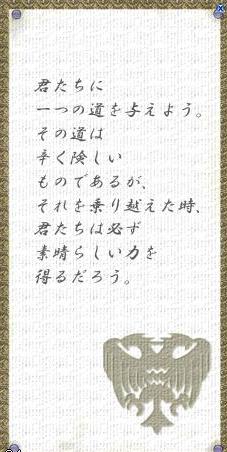 君たちに
一つの道を与えよう。
その道は
辛く険しい
ものであるが、
それを乗り越えた時、
君たちは必ず
素晴らしい力を
得るだろう。